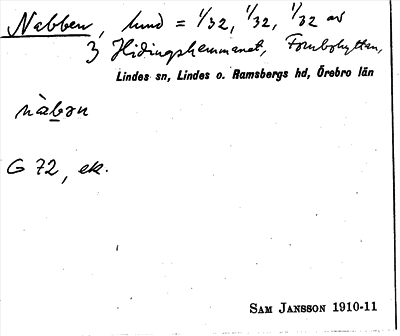 Nabben, hmd = 1/32, 1/32, 1/32 av
3 Hidingshemmanet, Fornbohyttan,
Lindes sn, Lindes o. Ramsbergs hd, Örebro län
nàbən
G 72, ek.
SAM JANSSON 1910-11